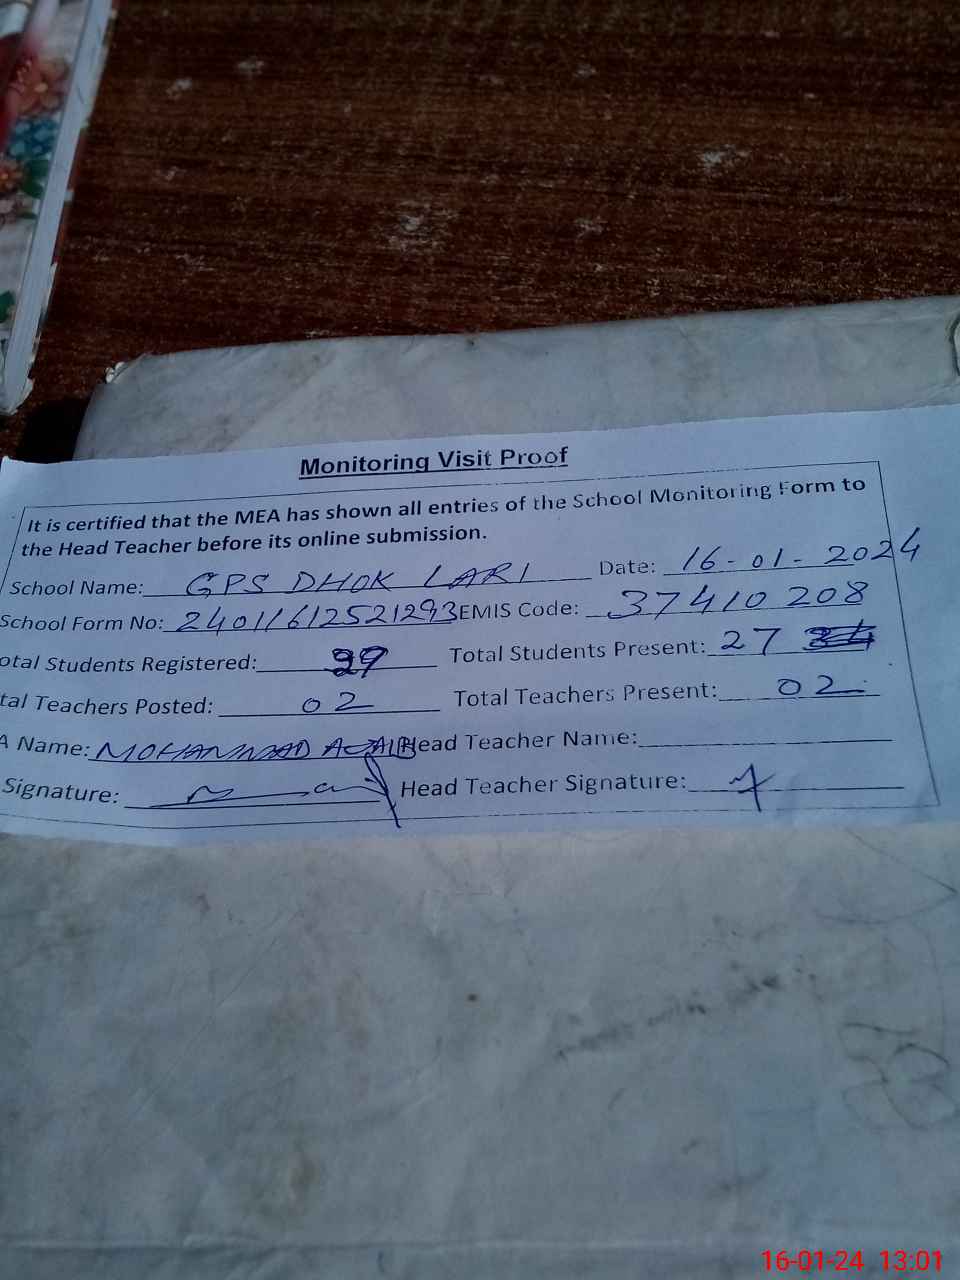 Monitoring Visit Proof
It is certified that the MEA has shown all entries of the School Monitoring Form to
the Head Teacher before its online submission.
School Name: GPS DHOK LARI Date: 16-01-2024
School Form No: 24011612521293 EMIS Code: 37410208
otal Students Registered: Total Students Present: 27
tal Teachers Posted: 02 Total Teachers Present: 02
A Name: MOHAMMAD Head Teacher Name:
Signature: Head Teacher Signature:
16-01-24 13:01